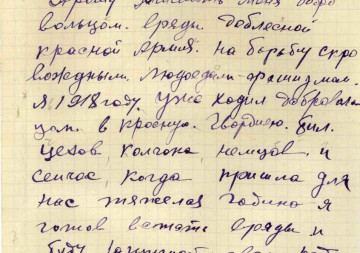 Прошу записать меня добро
вольцом. в ряды доблесной
красной Армия. на борьбу с кро
вожадными. людоедами-фашизмам.
Я 1918 году. уже ходил добровольц
цом. в красную. Гвардию. бил.
Чехов, колчака немцов и
сейчас, когда пришла для
нас тяжелая година я
готов встать в ряды и
буду